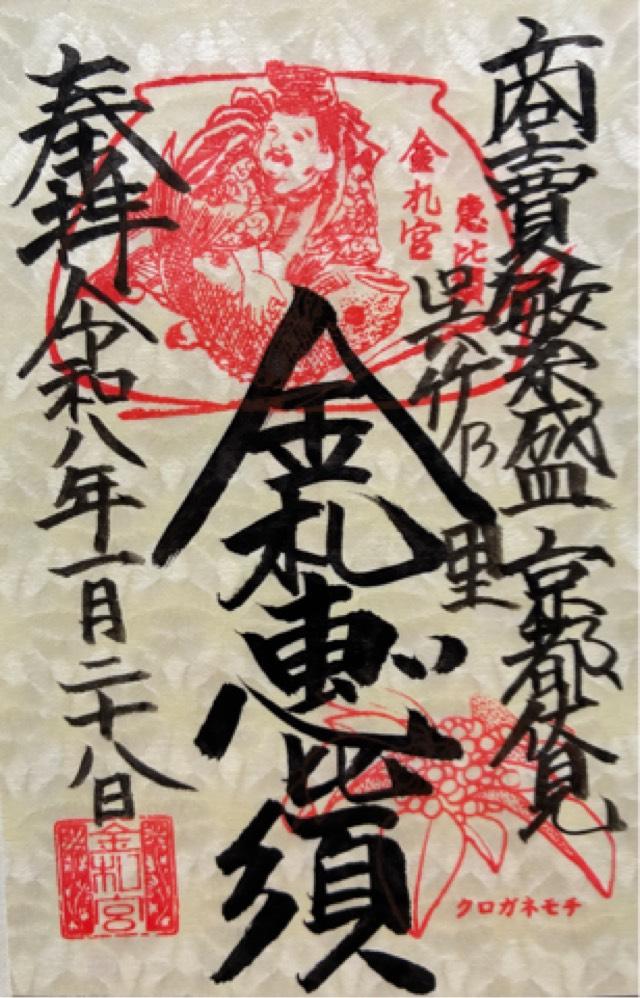 商賣繁盛 京都伏見
呉竹の里
恵比須
金札宮
金札恵比須
奉拝 令和八年一月二十八日
金札宮
クロガネモチ